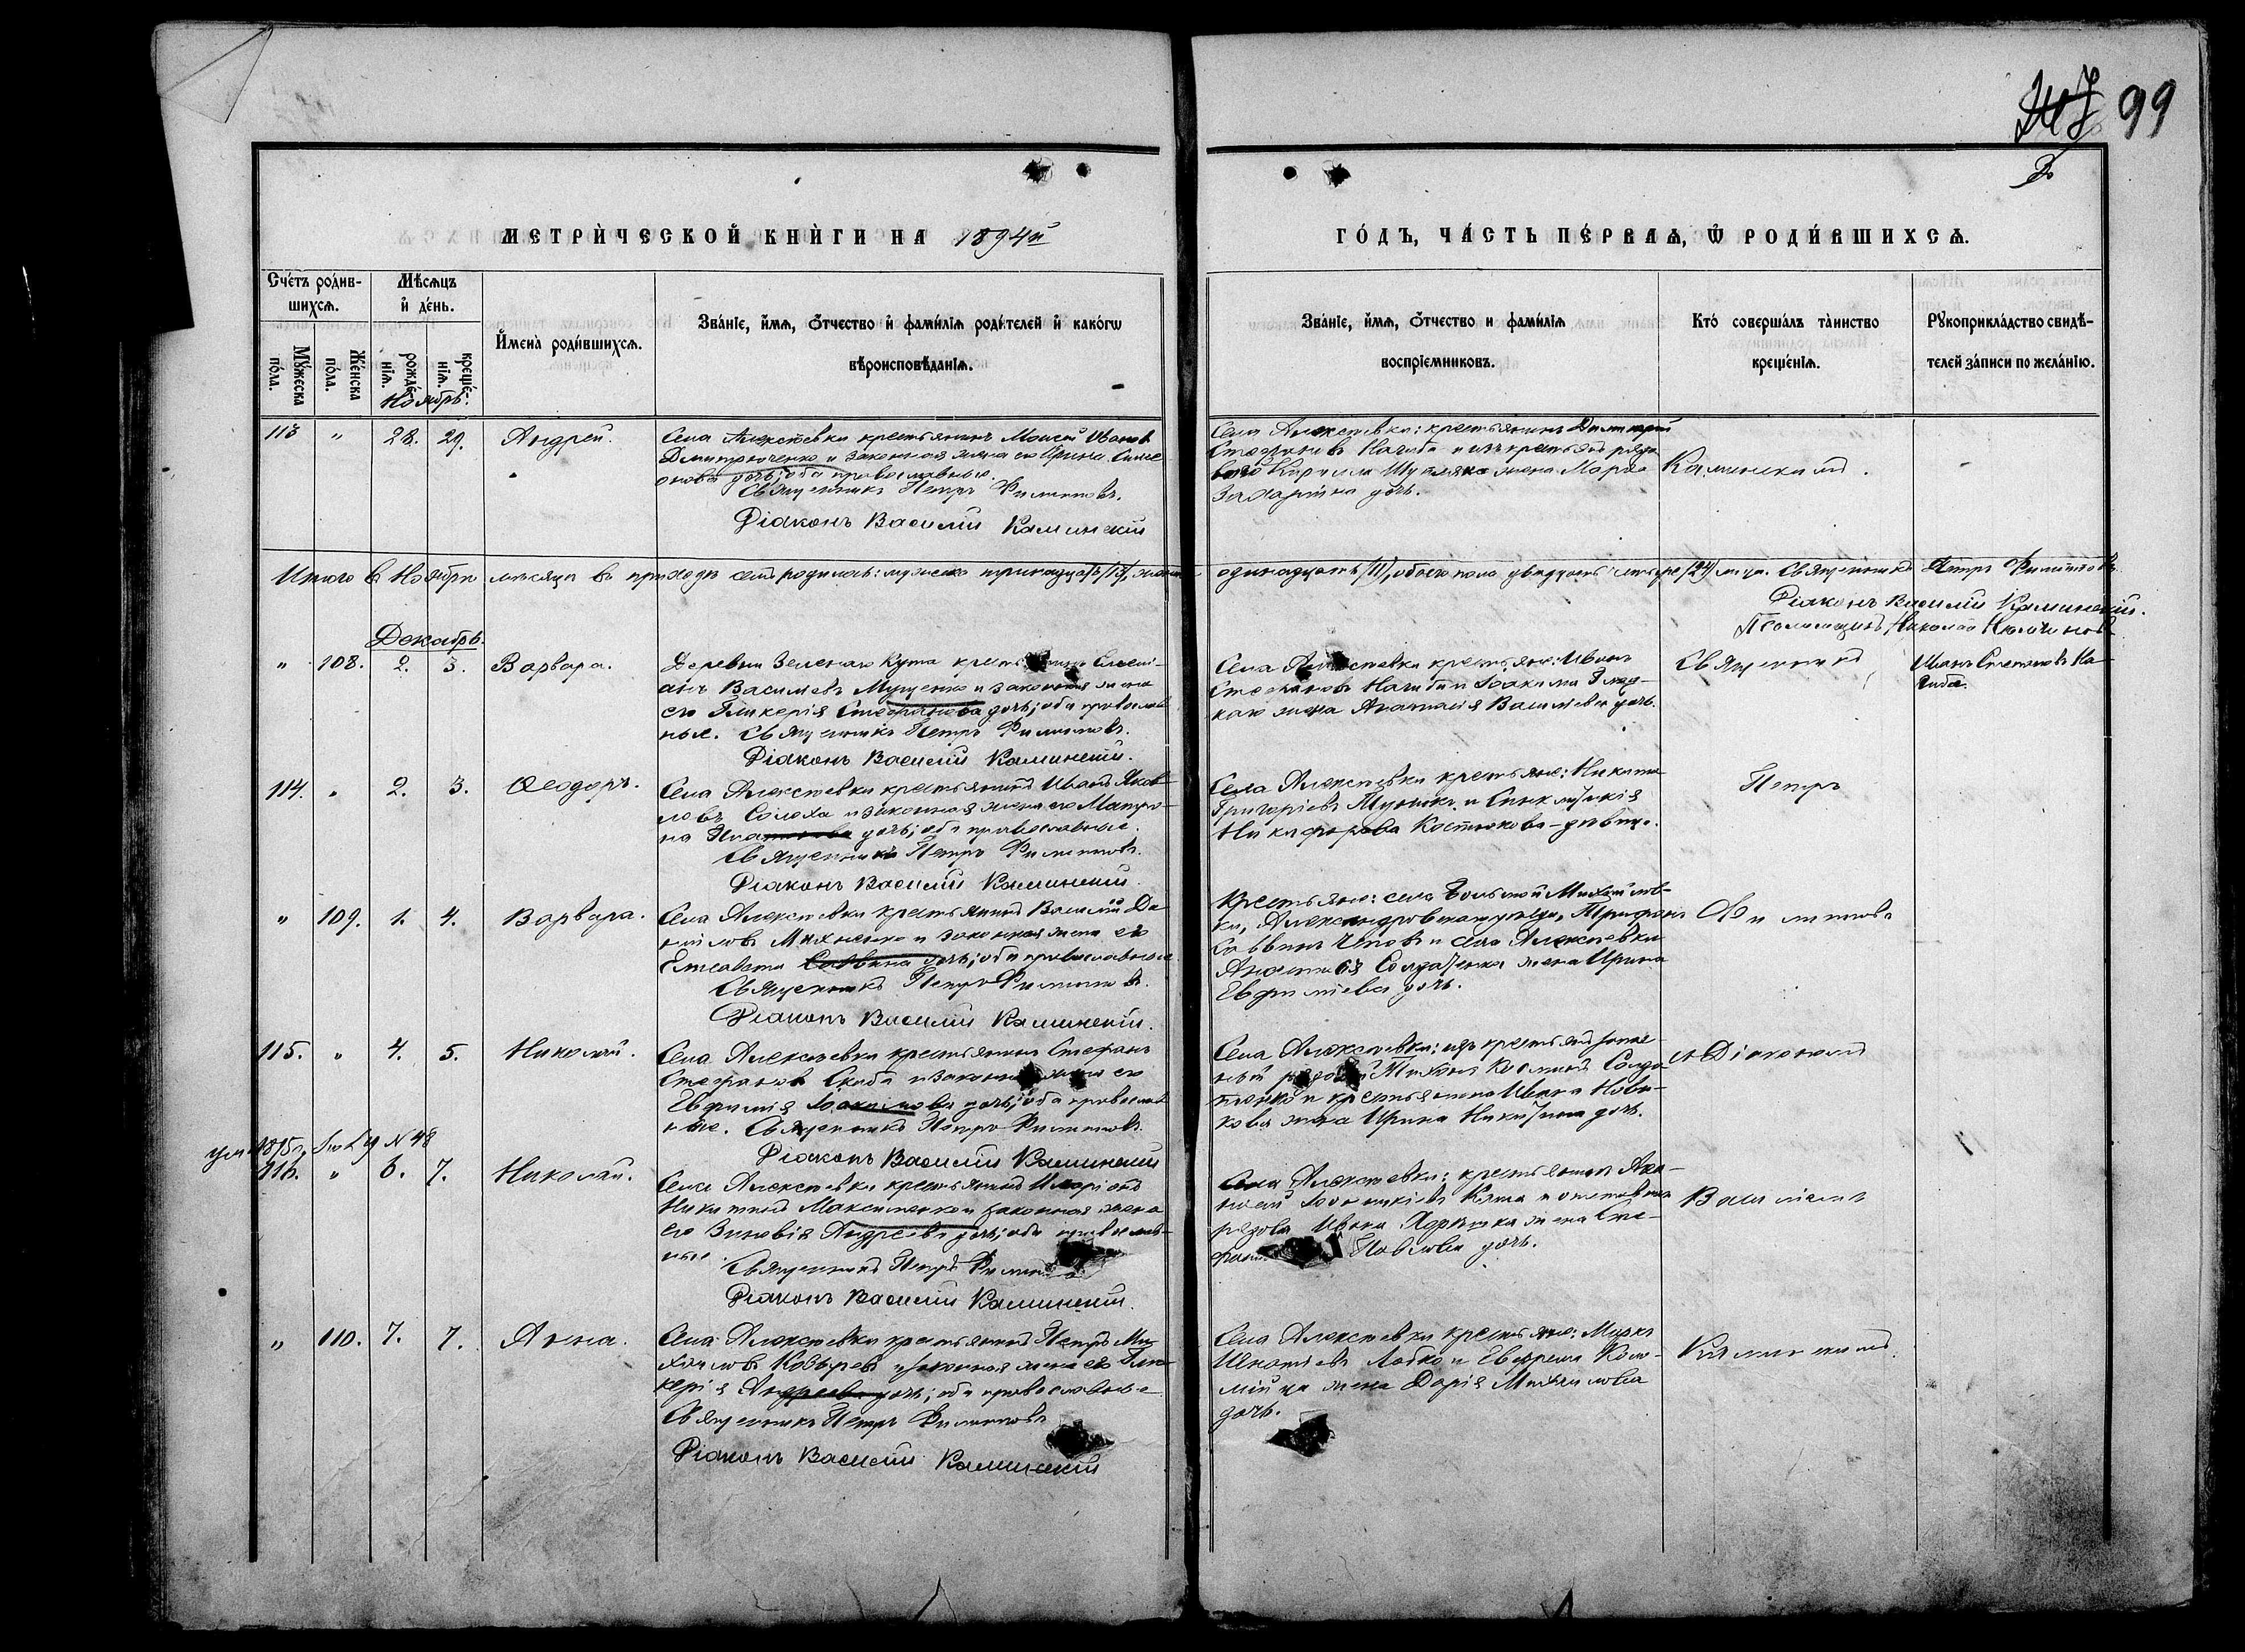 99
МЕТРИ́ЧЕСКОЙ КНИ́ГИ НА 1894й
ГО́ДЪ, ЧА́СТЬ ПЕ́РВАѦ, Ѿ РОДИ́ВШИХСѦ.
Сче́тъ роди́в-
шихсѧ.
Мꙋ́жеска по́ла.
Же́нска по́ла.
Мѣ́сѧцъ
и҆ де́нь.
рожде́-
нїѧ.
креще́-
нїѧ.
И҆мена̀ роди́вшихсѧ.
Зва́нїе, и҆́мѧ, ѻ҆́тчество и҆ фами́лїѧ роди́телей и҆ како́гѡ
вѣроисповѣ́данїѧ.
Зва́нїе, и҆́мѧ, ѻ҆́тчество и фами́лїѧ
воспрїе́мниковъ.
Кто́ соверша́лъ та̀инство
креще́нїѧ.
Рꙋкоприкла́дство свидѣ́-
телей за́писи по жела́нїю.
Ноябрь.
113 " 28. 29. Андрей.
Села Алексѣевки крестьянинъ Моисей Ивановъ
Дмитрюченко и законная жена его Ирина
дочь; оба православные.
Священникъ Петръ Филипповъ.
Діаконъ Василій Каминскій
Села Алексѣевки: крестьянинъ Димитрій
Стефановъ Нагиба и изъ крестьянъ рядо
ваго Кирилла жена Марѳа
Захаріина дочь.
Каминскимъ.
Итого въ Ноябрѣ мѣсяцѣ въ приходѣ семъ родилось: мужеска тринадцать /13/, женска
одинадцать /11/, обоего пола двадцать четыре /24/ лица. Священникъ Петръ Филипповъ
Діаконъ Василій Каминскій.
Псаломщикъ Николай
Декабрь.
" 108. 2. 3. Варвара.
Деревни Зеленаго Кута
Василіевъ Мущенко и законная жена
его Гликерія Стефанова дочь; оба православ
ные. Священникъ Петръ Филипповъ.
Діаконъ Василій Каминскій.
Села Алексѣевки крестьяне: Иванъ
Стефановъ Нагиба и Іоакима Глад-
каго жена Анастасія Василіева дочь.
Священникъ
Иванъ Степановъ На-
гиба.
114. " 2. 3. Ѳеодоръ.
Села Алексѣевки крестьянинъ Иванъ Яков-
левъ Солоха и законная жена его Матро-
на дочь; оба православные.
Священникъ Петръ Филипповъ.
Діаконъ Василій Каминскій.
Села Алексѣевки крестьяне: Никита
Григоріевъ и Синклитикія
Никифорова Костюкова - дѣвица.
Петръ
" 109. 1. 4. Варвара.
Села Алексѣевки крестьянинъ Василій Да-
ниловъ Михненко и законная жена его
Елисавета Саввина дочь; оба православные
Священникъ Петръ Филипповъ.
Діаконъ Василій Каминскій.
Крестьяне: села Большой Михайлов-
ки, Александровскаго уѣзда, Трифонъ
Саввинъ и села Алексѣевки
Солдатенка жена Ирина
Евфиміева дочь.
Филипповъ
115. " 4. 5. Николай.
Села Алексѣевки крестьянинъ Стефанъ
Стефановъ Скиба и законная жена его
Евфимія Іоакимова дочь; оба православ
ные. Священникъ Петръ Филипповъ.
Діаконъ Василій Каминскій
Села Алексѣевки: изъ крестьянъ
рядовой Тихонъ Косминъ Солда-
тенко и крестьянина Ивана Нови-
кова жена Ирина Никитина дочь.
съ Діакономъ
N 48
116. " 6. 7. Николай.
Села Алексѣевки крестьянинъ Иларіонъ
Никитинъ Максименко и законная жена
его Зиновія Андреева дочь; оба православ-
ные.
Священникъ Петръ
Діаконъ Василій Каминскій.
Села Алексѣевки: крестьянинъ
Ивана жена Сте-
Павлова дочь.
Василіемъ
" 110. 7. 7. Анна.
Села Алексѣевки крестьянинъ Петръ Ми-
хаиловъ Ковыревъ и законная жена его Гли-
керія Андреева дочь; оба православные
Священникъ Петръ Филипповъ
Діаконъ Василій Каминскій
Села Алексѣевки крестьяне: Маркъ
Игнатіевъ Лобко и Ефрема Коло-
мійца жена Дарія Михаилова
дочь.
Каминскимъ.